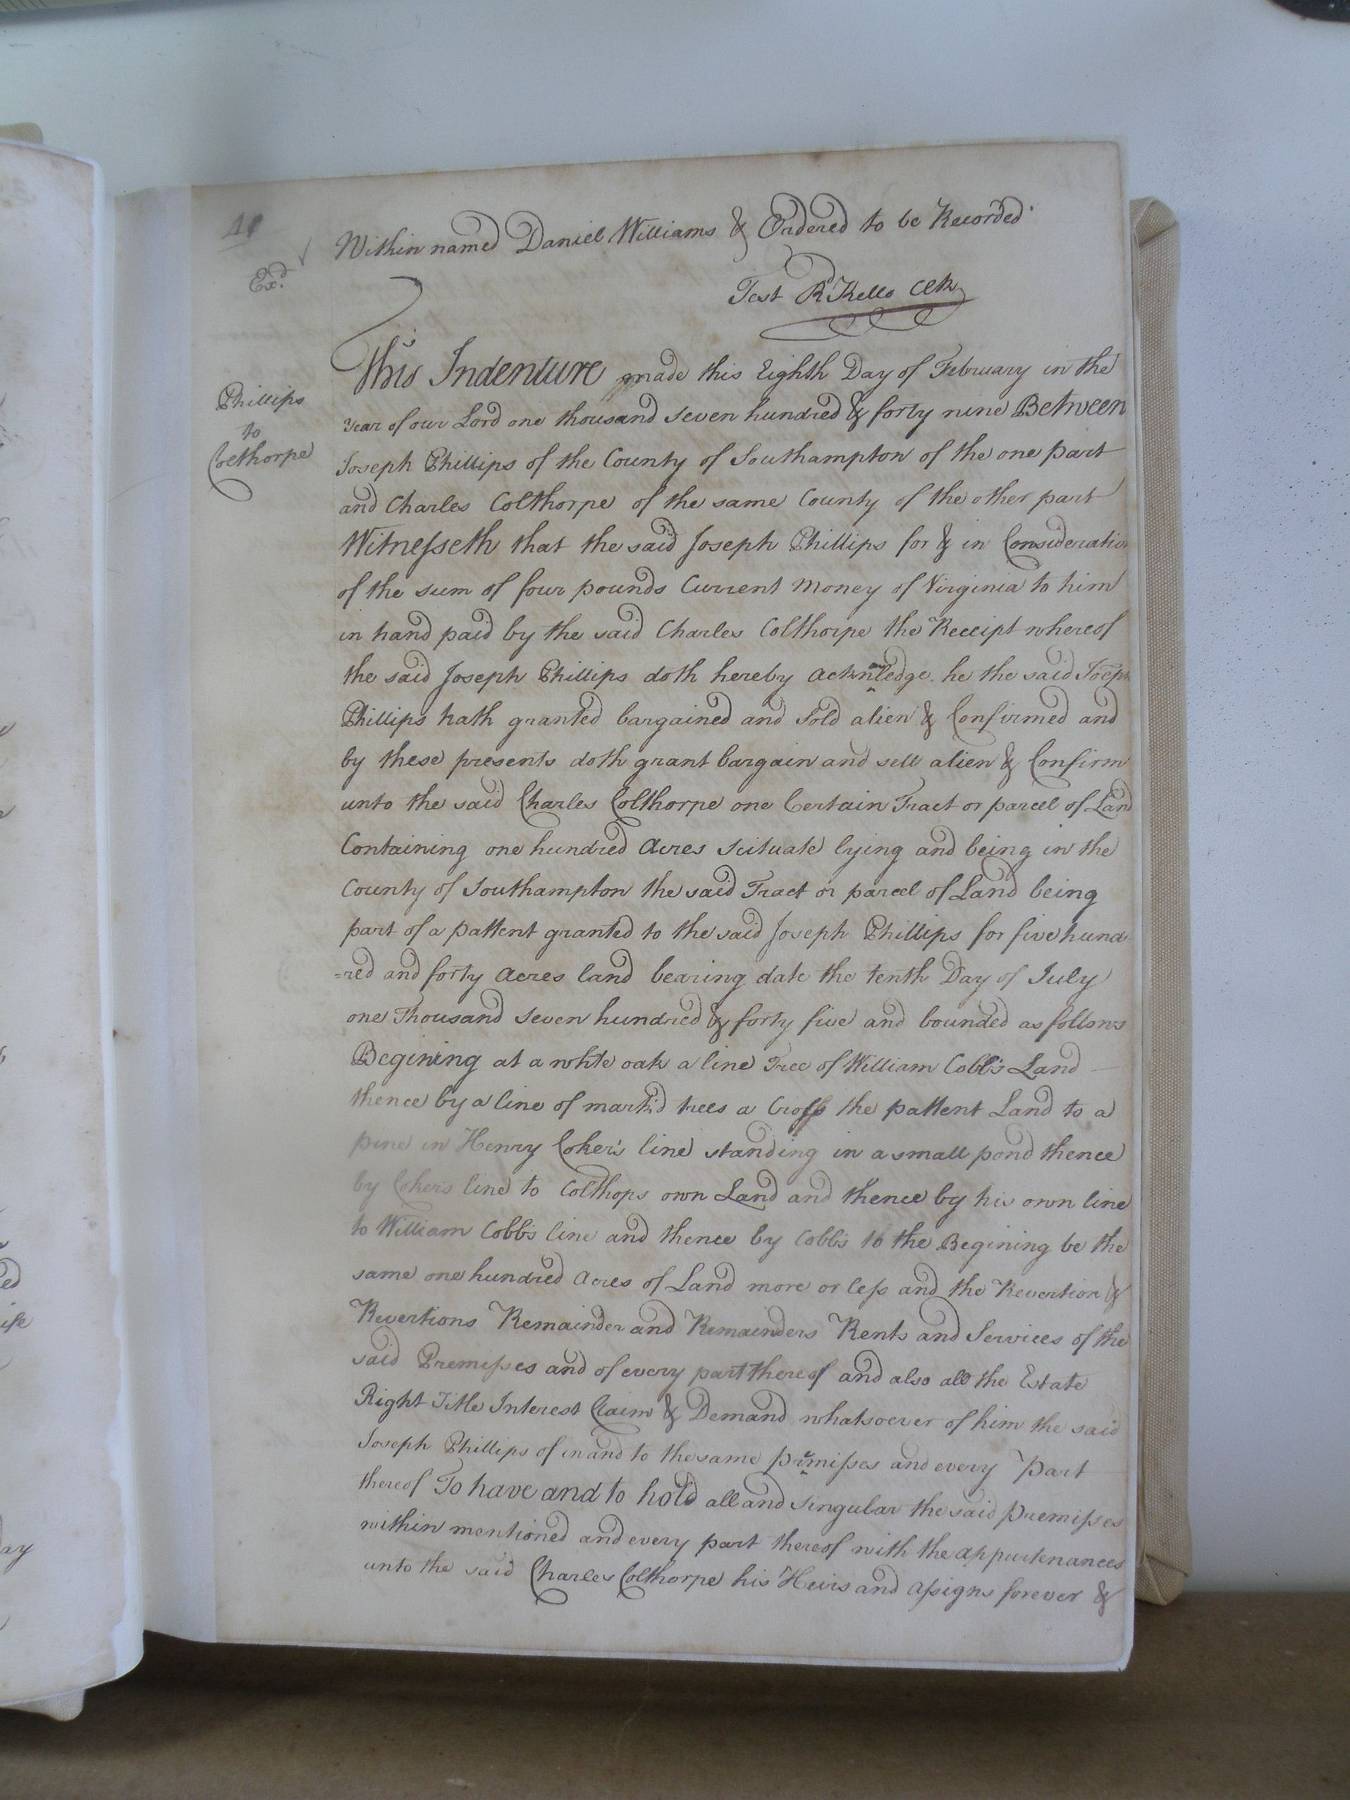 18
Within named Daniel Williams & Ordered to be Record'd
Ex.d
Test R Kello Clk
This Indenture made this Eighth Day of February in the
Phillips
to
Colthorpe
year of our Lord one thousand seven hundred & forty nine Between
Joseph Phillips of the County of Southampton of the one part
and Charles Colthorpe of the same County of the other part
Witnesseth that the said Joseph Phillips for & in Consideratio
of the sum of four pounds Current money of Virginia to him
in hand paid by the said Charles Colthorpe the Receipt whereof
the said Joseph Phillips doth hereby acknowledge he the said Joseph
Phillips hath granted bargained and Sold alien & Confirmed and
by these presents doth grant bargain and sell alien & Confirm
unto the said Charles Colthorpe one Certain Tract or parcel of Land
Containing one hundred Acres scituate lying and being in the
County of Southampton the said Tract or parcel of Land being
part of a pattent granted to the said Joseph Phillips for five hund
=red and forty Acres land bearing date the tenth Day of July
one Thousand Seven hundred & forty five and bounded as follows
Begining at a white oak a line Tree of William Cobb's Land
thence by a line of mark'd trees a Cross the pattent Land to a
pine in Henry Coker's line standing in a small pond thence
by Cokers line to Colthops own Land and thence by his own line
to William Cobb's line and thence by Cobb's to the Begining be the
same one hundred Acres of Land more or less and the Revertion &
Revertions Remainder and Remainders Rents and Services of the
said Premisses and of every part thereof and also all the Estate
Right Title Interest Claim & Demand whatsoever of him the said
Joseph Phillips of in and to the same premisses and every part
thereof To have and to hold all and singular the said premisses
within mentioned and every part thereof with the appurtenances
unto the said Charles Colthorpe his Heirs and assigns forever &